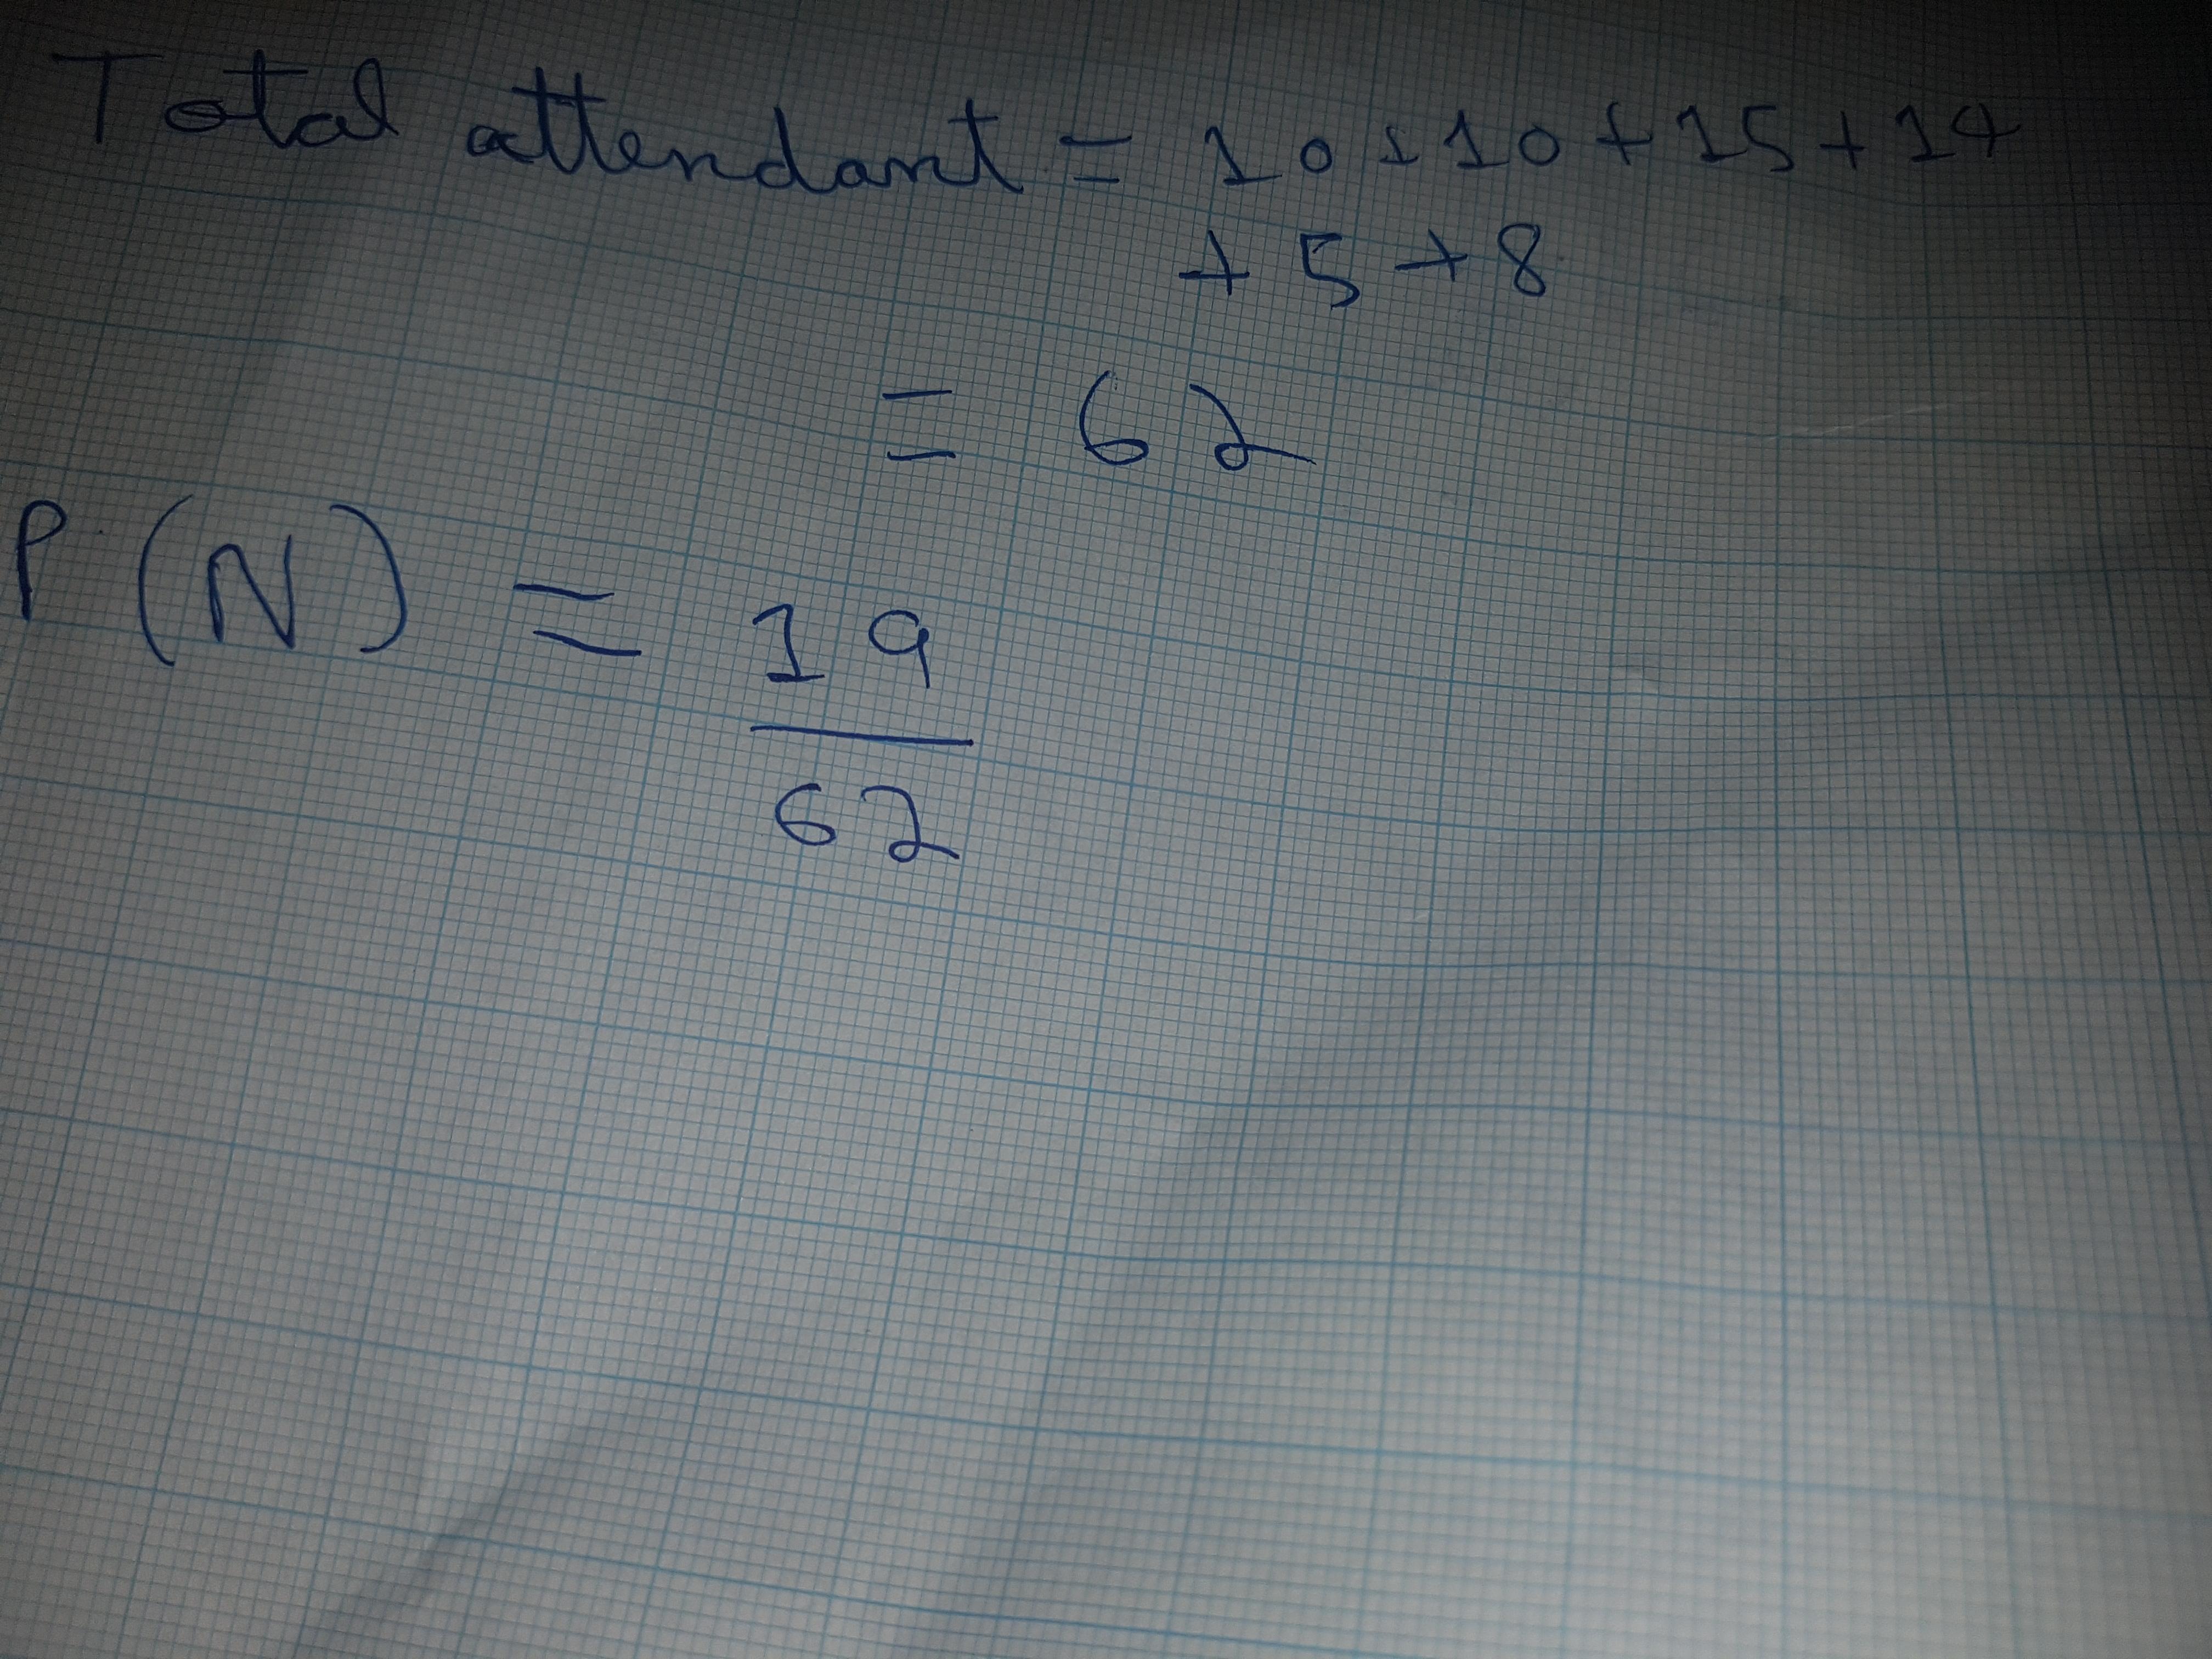 Total attendant = 10+10+15+14
+ 5 + 8
= 62
P(N) = 19
62